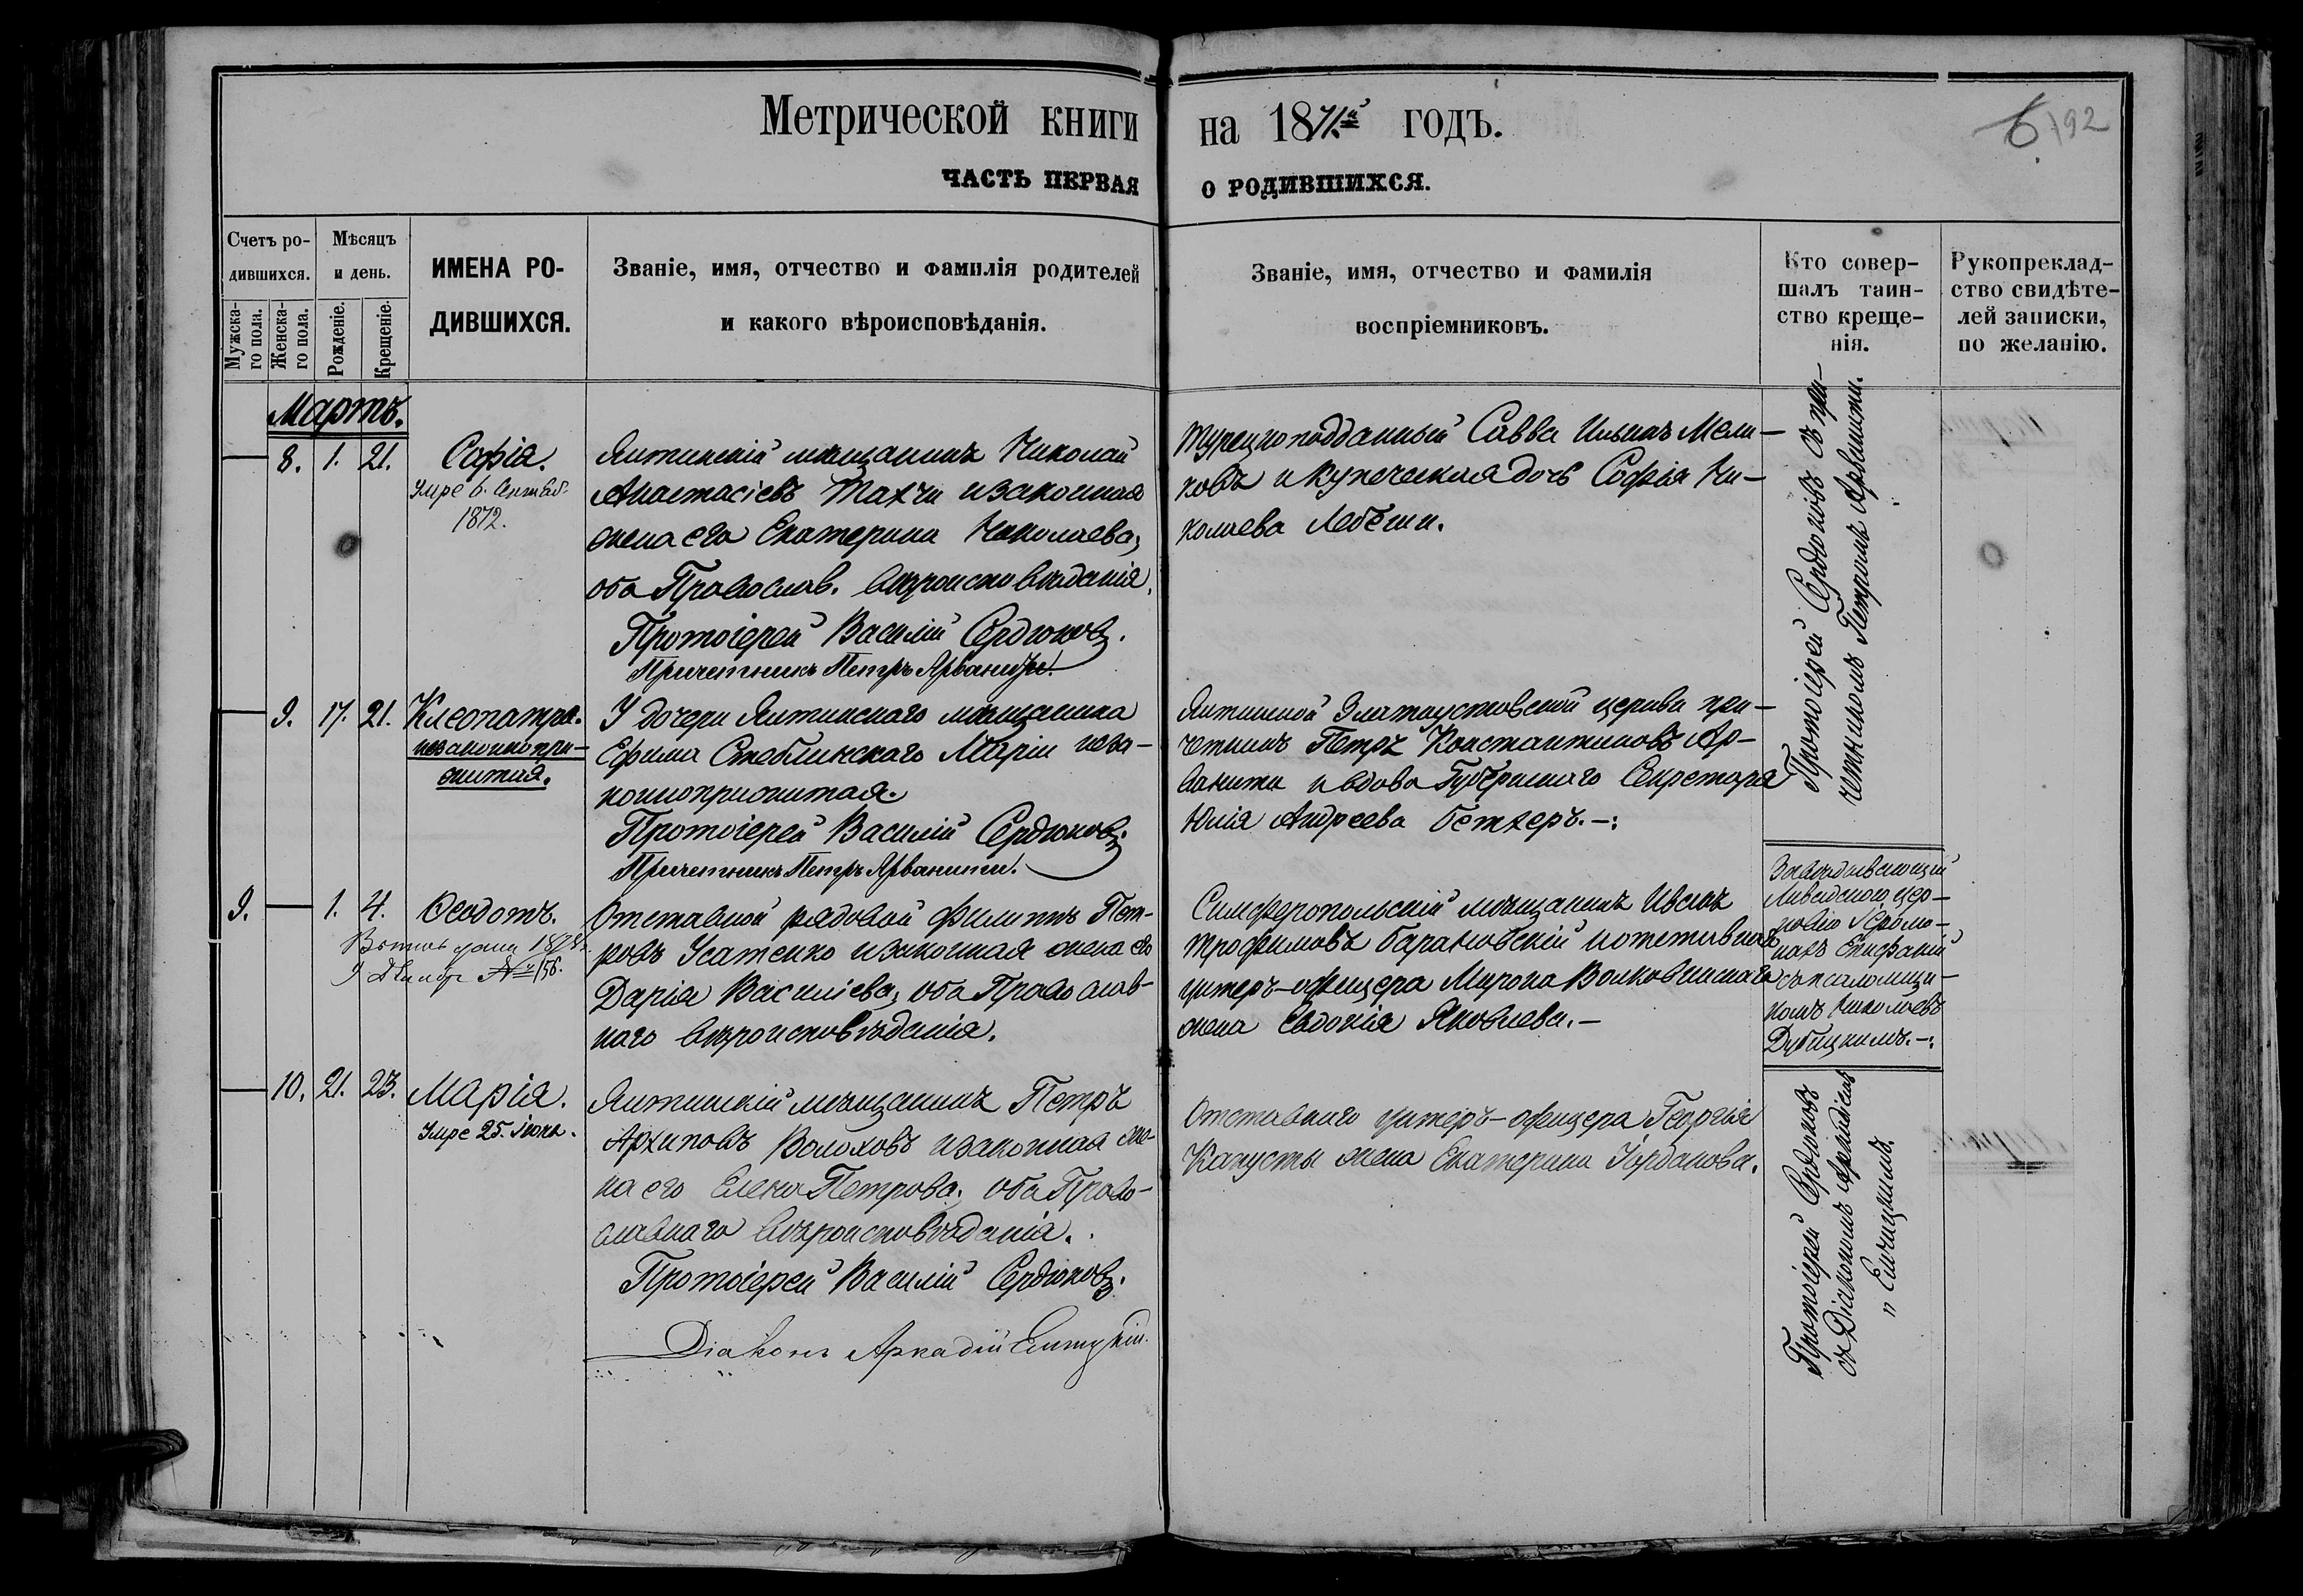 Метрической книги на 1871.й годъ.
6 192
ЧАСТЬ ПЕРВАЯ О РОДИВШИХСЯ.
Счетъ ро-
дившихся.
Мужска-
го пола.
Женска-
го пола.
Мѣсяцъ
и день.
Рожденіе.
Крещеніе.
ИМЕНА РО-
ДИВШИХСЯ.
Званіе, имя, отчество и фамилія родителей
и какого вѣроисповѣданія.
Званіе, имя, отчество и фамилія
воспріемниковъ.
Кто совер-
шалъ таин-
ство креще-
нія.
Рукопреклад-
ство свидѣте-
лей записки,
по желанію.
Мартъ.
8. 1. 21.
Софія.
Умре 6.
1872.
Ялтинскій мѣщанинъ Николай
Анастасіевъ Тахчи и законная
жена его Екатерина Николаева,
оба Православ. вѣроисповѣданія.
Протоіерей Василій Сердюковъ.
Причетникъ Петръ Арванити.
Турецкоподданный Савва Ильинъ Мели-
ковъ и купеческая дочь Софія Ни-
колаева
Протоіерей Сердюковъ съ при-
четникомъ Петромъ Арванити.
9. 17. 21.
Клеопатра.
незаконнопри-
житая.
У дочери Ялтинскаго мѣщанина
Ефима Стеблинскаго Маріи неза-
конноприжитая.
Протоіерей Василій Сердюковъ.
Причетникъ Петръ Арванити.
Ялтинской Златоустовской церкви при-
четникъ Петръ Константиновъ Ар-
ванити и вдова Губернскаго Секретаря
Юлія Андреева Бетхеръ.-:
9. 1. 4.
Ѳеодотъ.
9 № 156.
Отставной рядовой Филиппъ Пет-
ровъ Усатенко и законная жена его
Дарія Василіева, оба Православ-
наго вѣроисповѣданія.
Симферопольскій мѣщанинъ Иванъ
Трофимовъ Барановскій и отставнаго
унтеръ-офицера Мирона Волковинскаго
жена Евдокія Яковлева.-
Завѣдывающій
Ливадскою цер-
ковію Іеромо-
нахъ Епифаній
съ псаломщи-
комъ Николаевъ
Дубицкимъ.-:
10. 21. 23.
Марія.
Умре 25. іюня.
Ялтинскій мѣщанинъ Петръ
Архиповъ Волоховъ и законная же-
на его Елена Петрова, оба Право-
славнаго вѣроисповѣданія.
Протоіерей Василій Сердюковъ.
Діаконъ Аркадій
Отставнаго унтеръ-офицера Георгія
Капусты жена Екатерина Іорданова.
Протоіерей Сердюковъ
съ Діакономъ Аркадіемъ